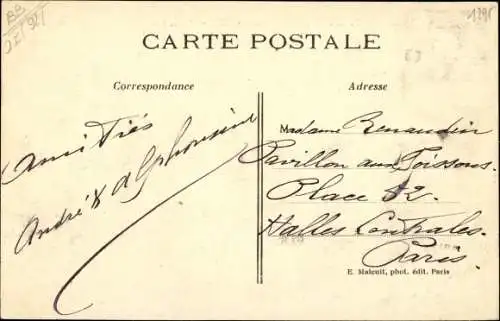 1295
CARTE POSTALE
Correspondance
Adresse
Amitiés
André & Alphonsine
Madame Renaudin
Pavillon aux Poissons.
Place 52.
Halles Centrales.
Paris.
E. Malcuit, phot. édit. Paris